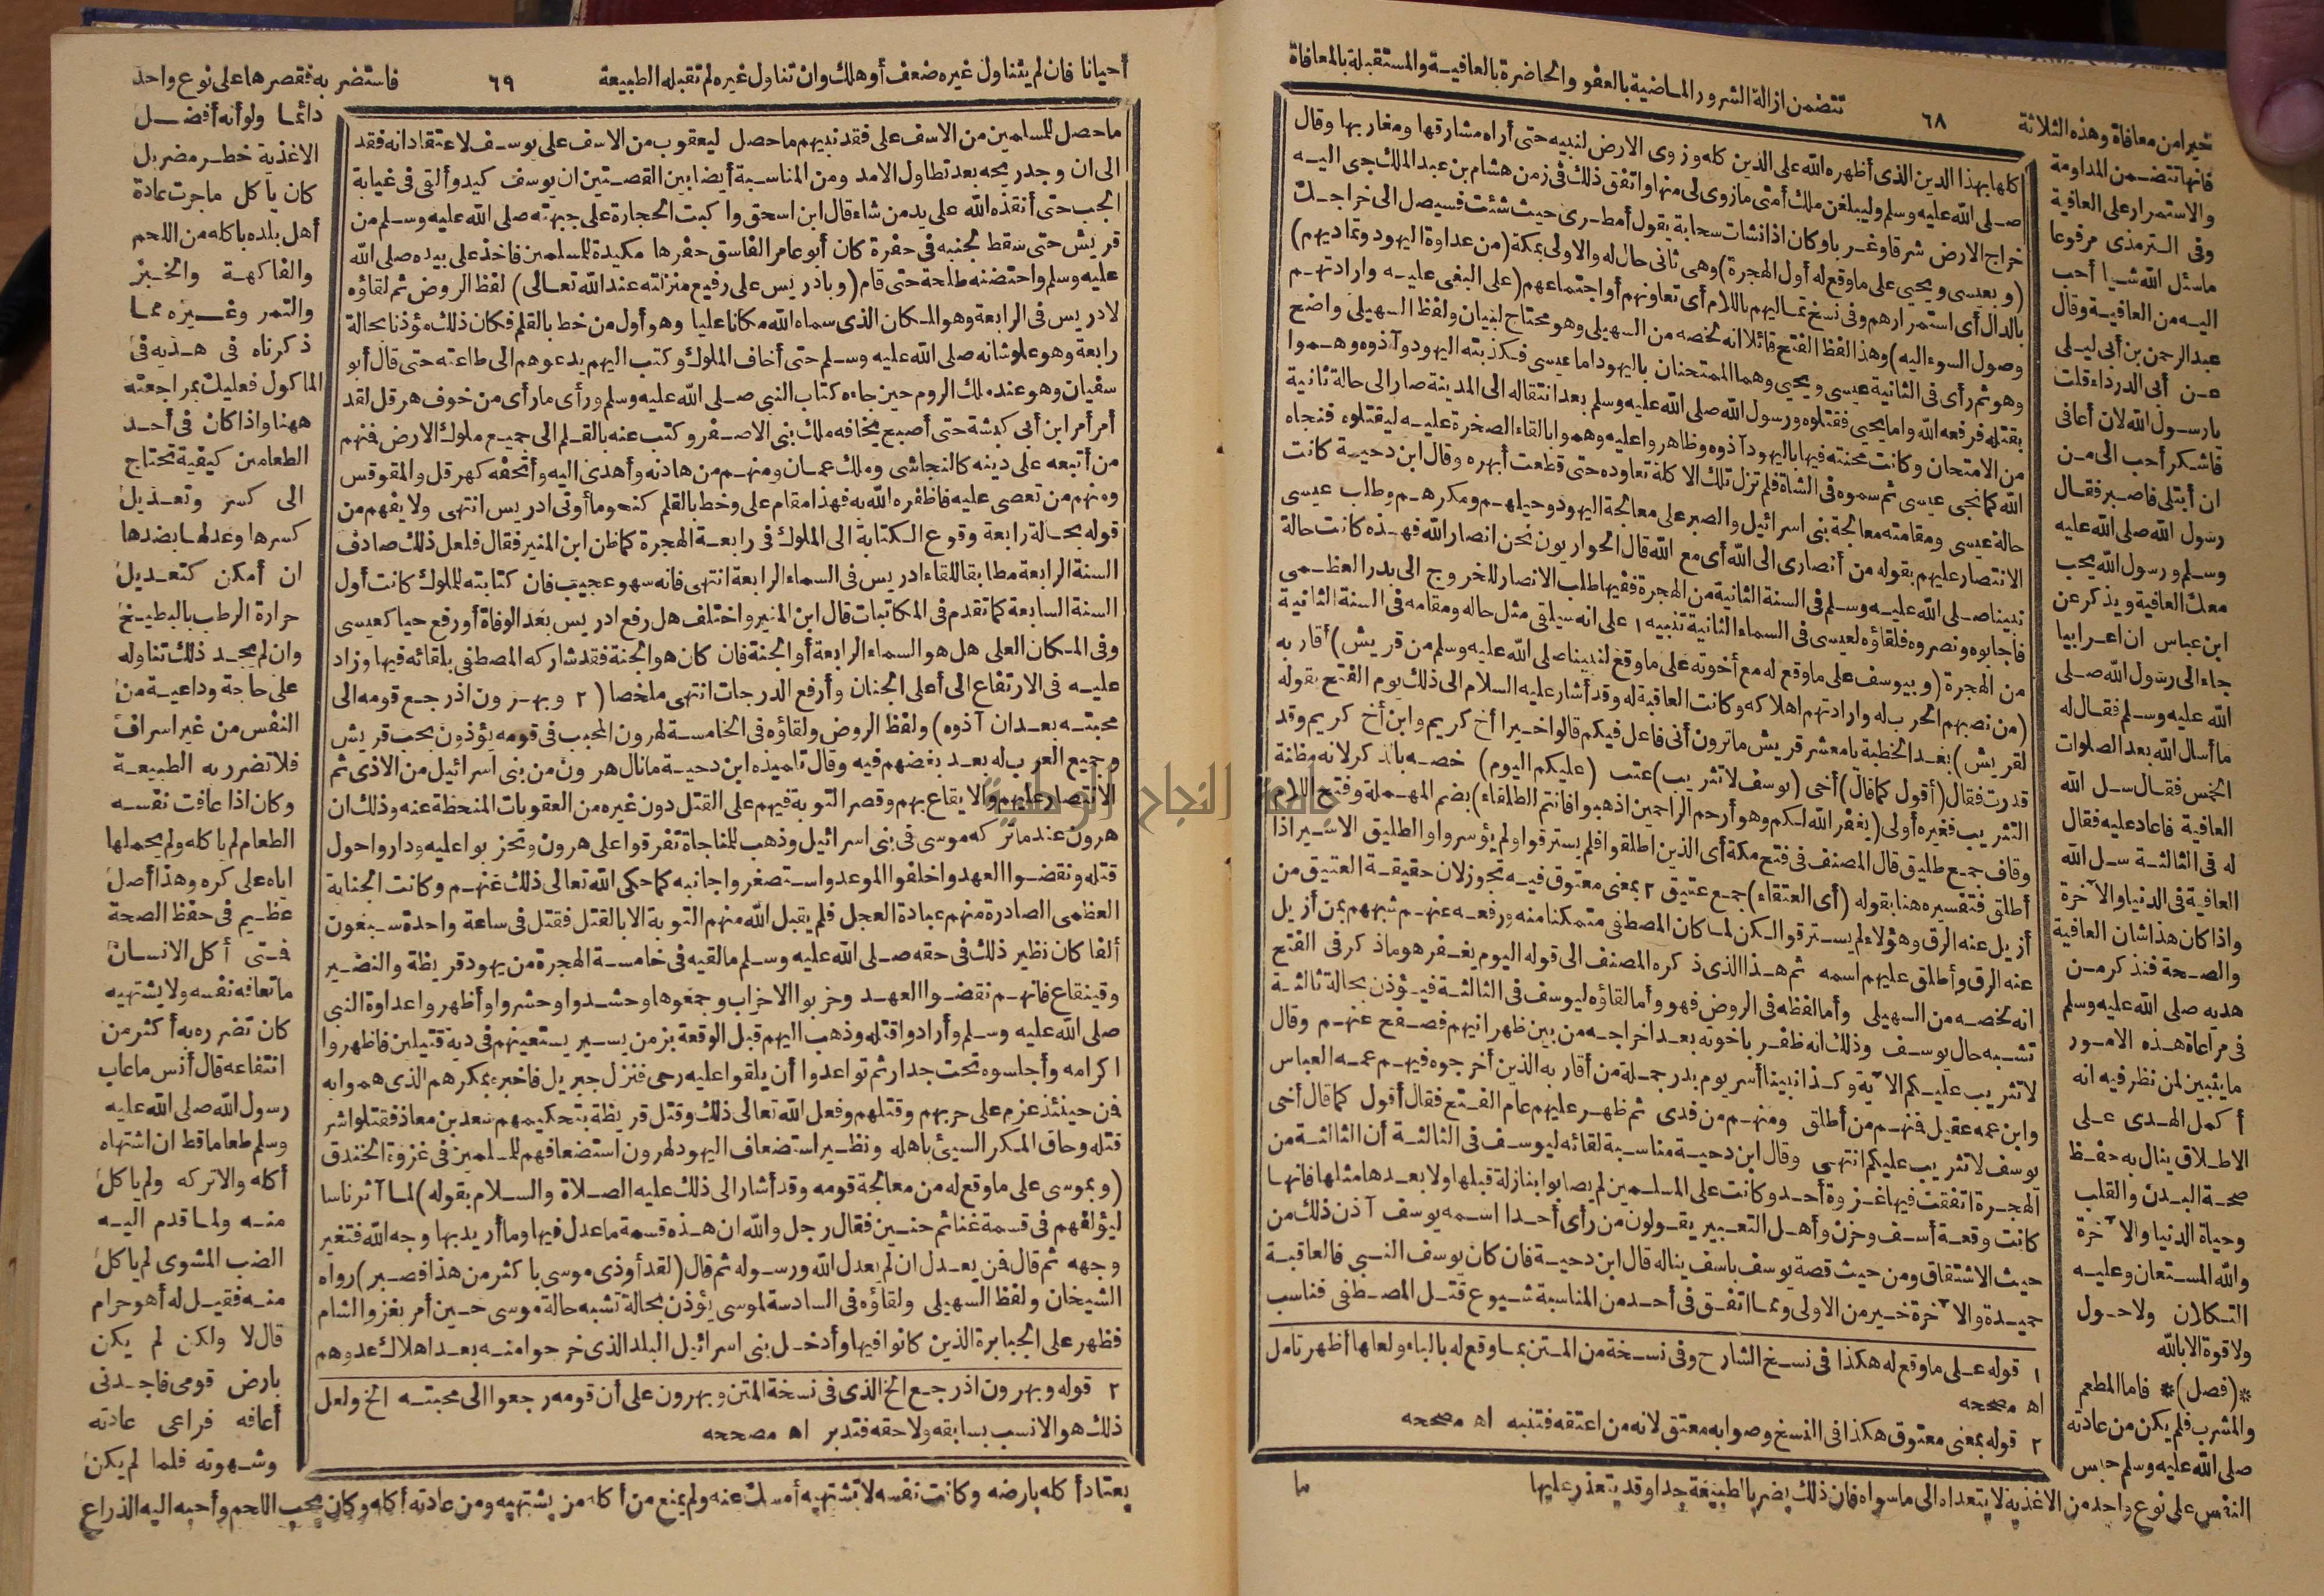 خيرا من معافاة وهذه الثلاثة
٦٨
تتضمن ازالة الشرور الماضية بالعفو والحاضرة بالعافية والمستقبلة بالمعافاة
فانها تتضمن المداومة
والاستمرار على العافية
وفى الترمذى مرفوعا
ماسئل الله شيأ أحب
اليه من العافية وقال
عبد الرحمن بن أبى ليلى
عن أبى الدرداء قلت
يا رسول الله لان أعافى
فاشكر أحب الى من
ان أبتلى فاصبر فقال
رسول الله صلى الله عليه
وسلم ورسول الله يحب
معك العافية ويذكر عن
ابن عباس ان اعرابيا
جاء الى رسول الله صلى
الله عليه وسلم فقال له
ما أسال الله بعد الصلوات
الخمس فقال سل الله
العافية فاعاد عليه فقال
له فى الثالثة سل الله
العافية فى الدنيا والآخرة
واذا كان هذا شان العافية
والصحة فنذكر من
هديه صلى الله عليه وسلم
فى مراعاة هذه الامور
مايتبين لمن نظر فيه انه
أكمل الهدى على
الاطلاق ينال به حفظ
صحة البدن والقلب
وحياة الدنيا والآخرة
والله المستعان وعليه
التكلان ولاحول
ولاقوة الابالله
*(فصل)* فاما المطعم
والمشرب فلم يكن من عادته
صلى الله عليه وسلم حبس
النفس على نوع واحد من الاغذية لا يتعداه الى ماسواه فان ذلك يضر بالطبيعة جدا وقد يتعذر عليها
اكلها بهذا الدين الذى أظهره الله على الدين كله وزوى الارض لنبيه حتى أراه مشارقها ومغاربها وقال
صلى الله عليه وسلم وليبلغن ملك أمتى مازوى لى منها واتفق ذلك فى زمن هشام بن عبد الملك جى اليه
خراج الارض شرقا وغربا وكان اذا نشات سحابة يقول أمطرى حيث شئت فسيصل الى خراجك
(وبعيسى ويحيى على ماوقع له أول الهجرة) وهى ثانى حال له والاولى بمكة (من عداوة اليهود وتماديهم)
بالدال أى استمرارهم وفى نسخ تماليهم باللام أى تعاونهم أو اجتماعهم (على البغى عليه وارادتهم
وصول السوء اليه) وهذا لفظ الفتح قائلا انه لخصه من السهيلى وهو محتاج لبيان ولفظ السهيلى واضح
وهو ثم رأى فى الثانية عيسى ويحيى وهما الممتحنان باليهود اما عيسى فكذبته اليهود وآذوه وهموا
بقتله فرفعه الله واما يحيى فقتلوه ورسول الله صلى الله عليه وسلم بعد انتقاله الى المدينة صار الى حالة ثانية
من الامتحان وكانت محنته فيها باليهود آذوه وظاهروا عليه وهموا بالقاء الصخرة عليه ليقتلوه فنجاه
الله كما نجى عيسى ثم سموه فى الشاة فلم تزل تلك الاكلة تعاوده حتى قطعت أبهره وقال ابن دحية كانت
حالة عيسى ومقامته معالجة بنى اسرائيل والصبر على معالجة اليهود وحيلهم ومكرهم وطلب عيسى
الانتصار عليهم بقوله من أنصارى الى الله أى مع الله قال الحواريون نحن انصار الله فهذه كانت حالة
نبينا صلى الله عليه وسلم فى السنة الثانية من الهجرة ففيها طلب الانصار للخروج الى بدر العظمى
فاجابوه ونصروه فلقاؤه لعيسى فى السماء الثانية تنبيه ١ على انه سيلقى مثل حاله ومقامه فى السنة الثانية
من الهجرة (وبيوسف على ماوقع له مع أخوته على ماوقع لنبينا صلى الله عليه وسلم من قريش) أقاربه
(من نصبهم الحرب له وارادتهم اهلاكه وكانت العاقبة له وقد أشار عليه السلام الى ذلك يوم الفتح بقوله
لقريش) بعد الخطبة يا معشر قريش ماترون أنى فاعل فيكم قالوا خيرا أخ كريم وابن أخ كريم وقد
قدرت فقال (أقول كما قال) أخى (يوسف لاتثريب) عتب (عليكم اليوم) خصه بالذكر لانه مظنة
التثريب فغيره أولى (يغفر الله لكم وهو أرحم الراحمين اذهبوا فانتم الطلقاء) بضم المهملة وفتح اللام
وقاف جمع طليق قال المصنف فى فتح مكة أى الذين اطلقوا فلم يسترقوا ولم يؤسروا والطليق الاسير اذا
أطلق فتفسيره هنا بقوله (أى العتقاء) جمع عتيق ٢ بمعنى معتوق فيه تجوز لان حقيقة العتيق من
أزيل عنه الرق وهؤلاء لم يسترقوا لكن لما كان المصطفى متمكنا منه ورفعه عنهم شبههم بمن أزيل
عنه الرق وأطلق عليهم اسمه ثم هذا الذى ذكره المصنف الى قوله اليوم يغفر هو ماذكر فى الفتح
انه لخصه من السهيلى وأما لفظه فى الروض فهو وأما لقاؤه ليوسف فى الثالثة فيؤذن بحالة ثالثة
تشبه حال يوسف وذلك انه ظفر باخوته بعد اخراجه من بين ظهرانيهم فصفح عنهم وقال
لاتثريب عليكم الآية وكذا نبينا أسر يوم بدر جملة من أقاربه الذين أخرجوه فيهم عمه العباس
وابن عمه عقيل فمنهم من أطلق ومنهم من فدى ثم ظهر عليهم عام الفتح فقال أقول كما قال أخى
يوسف لاتثريب عليكم انتهى وقال ابن دحية مناسبة لقائه ليوسف فى الثالثة أن الثالثة من
الهجرة اتفقت فيها غزوة أحد وكانت على المسلمين لم يصابوا بنازلة قبلها ولا بعدها مثلها فانها
كانت وقعة أسف وحزن وأهل التعبير يقولون من رأى أحدا اسمه يوسف آذن ذلك من
حيث الاشتقاق ومن حيث قصة يوسف باسف يناله قال ابن دحية فان كان يوسف النبى فالعاقبة
حميدة والآخرة خير من الاولى ومما اتفق فى أحد من المناسبة شيوع قتل المصطفى فناسب
١ قوله على ماوقع له هكذا فى نسخ الشارح وفى نسخة من المتن بما وقع له بالباء ولعلها أظهر تامل
اه مصححه
٢ قوله بمعنى معتوق هكذا فى النسخ وصوابه معتق لانه من اعتقه فتنبه اه مصححه
ما
أحيانا فان لم يتناول غيره ضعف أو هلك وان تناول غيره لم تقبله الطبيعة
٦٩
فاستضر به فقصرها على نوع واحد
ماحصل للمسلمين من الاسف على فقد نبيهم ماحصل ليعقوب من الاسف على يوسف لاعتقاد انه فقد
الى ان وجد ريحه بعد تطاول الامد ومن المناسبة أيضا بين القصتين ان يوسف كيد وألقى فى غيابة
الجب حتى أنقذه الله على يد من شاء قال ابن اسحق واكبت الحجارة على جبهته صلى الله عليه وسلم من
قريش حتى سقط لجنبه فى حفرة كان أبو عامر الفاسق حفرها مكيدة للمسلمين فاخذ على بيده صلى الله
عليه وسلم واحتضنه طلحة حتى قام (وبادريس على رفيع منزلته عند الله تعالى) لفظ الروض ثم لقاؤه
لادريس فى الرابعة وهو المكان الذى سماه الله مكانا عليا وهو أول من خط بالقلم فكان ذلك مؤذنا بحالة
رابعة وهو علو شانه صلى الله عليه وسلم حتى أخاف الملوك وكتب اليهم يدعوهم الى طاعته حتى قال أبو
سفيان وهو عند ملك الروم حين جاءه كتاب النبى صلى الله عليه وسلم ورأى مارأى من خوف هرقل لقد
أمر أمر ابن أبى كبشة حتى أصبح يخافه ملك بنى الاصفر وكتب عنه بالقلم الى جميع ملوك الارض فمنهم
من أتبعه على دينه كالنجاشى وملك عمان ومنهم من هادنه وأهدى اليه وأتحفه كهرقل والمقوقس
ومنهم من تعصى عليه فاظفره الله به فهذا مقام على وخط بالقلم كنحو ما أوتى ادريس انتهى ولا يفهم من
قوله بحالة رابعة وقوع الكتابة الى الملوك فى رابعة الهجرة كما ظن ابن المنير فقال فلعل ذلك صادف
السنة الرابعة مطابقا للقاء ادريس فى السماء الرابعة انتهى فانه سهو عجيب فان كتابته للملوك كانت أول
السنة السابعة كما تقدم فى المكاتبات قال ابن المنير واختلف هل رفع ادريس بعد الوفاة أو رفع حيا كعيسى
وفى المكان العلى هل هو السماء الرابعة أو الجنة فان كان هو الجنة فقد شاركه المصطفى بلقائه فيها وزاد
عليه فى الارتفاع الى أعلى الجنان وأرفع الدرجات انتهى ملخصا (٢ وبهرون اذ رجع قومه الى
محبته بعد ان آذوه) ولفظ الروض ولقاؤه فى الخامسة لهرون المحبب فى قومه يؤذن بحب قريش
وجميع العرب له بعد بغضهم فيه وقال تلميذه ابن دحية مانال هرون من بنى اسرائيل من الاذى ثم
الانتصار عليهم والايقاع بهم وقصر التوبة فيهم على القتل دون غيره من العقوبات المنحطة عنه وذلك ان
هرون عند ماتركه موسى فى بنى اسرائيل وذهب للمناجاة تفرقوا على هرون وتحزبوا عليه وداروا حول
قتله ونقضوا العهد واخلفوا الموعد واستصغروا جانبه كما حكى الله تعالى ذلك عنهم وكانت الجناية
العظمى الصادرة منهم عبادة العجل فلم يقبل الله منهم التوبة الا بالقتل فقتل فى ساعة واحدة سبعون
ألفا كان نظير ذلك فى حقه صلى الله عليه وسلم مالقيه فى خامسة الهجرة من يهود قريظة والنضير
وقينقاع فانهم نقضوا العهد وحزبوا الاحزاب وجمعوها وحشدوا وحشروا وأظهروا عداوة النبى
صلى الله عليه وسلم وأرادوا قتله وذهب اليهم قبل الوقعة بزمن يسير يستعينهم فى دية قتيلين فاظهروا
اكرامه وأجلسوه تحت جدار ثم تواعدوا أن يلقوا عليه رحى فنزل جبريل فاخبره بمكرهم الذى هموا به
فمن حينئذ عزم على حربهم وقتلهم وفعل الله تعالى ذلك وقتل قريظة بتحكيمهم سعد بن معاذ فقتلوا شر
قتله وحاق المكر السيئ باهله ونظير استضعاف اليهود لهرون استضعافهم للمسلمين فى غزوة الخندق
(وبموسى على ماوقع له من معالجة قومه وقد أشار الى ذلك عليه الصلاة والسلام بقوله) لما آثر ناسا
ليؤلفهم فى قسمة غنائم حنين فقال رجل والله ان هذه قسمة ماعدل فيها وما أريد بها وجه الله فتغير
وجهه ثم قال فمن يعدل ان لم يعدل الله ورسوله ثم قال (لقد أوذى موسى باكثر من هذا فصبر) رواه
الشيخان ولفظ السهيلى ولقاؤه فى السادسة لموسى يؤذن بحالة تشبه حالة موسى حين أمر بغزو الشام
فظهر على الجبابرة الذين كانوا فيها وأدخل بنى اسرائيل البلد الذى خرجوا منه بعد اهلاك عدوهم
٢ قوله وبهرون اذ رجع الخ الذى فى نسخة المتن وبهرون على أن قومه رجعوا الى محبته الخ ولعل
ذلك هو الانسب بسابقه ولاحقه فتدبر اه مصححه
دائما ولو أنه أفضل
الاغذية خطر مضر بل
كان ياكل ماجرت عادة
أهل بلده باكله من اللحم
والفاكهة والخبز
والتمر وغيره مما
ذكرناه فى هديه فى
الماكول فعليك بمراجعته
ههنا واذا كان فى أحد
الطعامين كيفية تحتاج
الى كسر وتعديل
كسرها وعدلها بضدها
ان أمكن كتعديل
حرارة الرطب بالبطيخ
وان لم يجد ذلك تناوله
على حاجة وداعية من
النفس من غير اسراف
فلا تضرر به الطبيعة
وكان اذا عافت نفسه
الطعام لم ياكله ولم يحملها
اياه على كره وهذا أصل
عظيم فى حفظ الصحة
فمتى أكل الانسان
ماتعافه نفسه ولا يشتهيه
كان تضرره به أكثر من
انتفاعه قال أنس ماعاب
رسول الله صلى الله عليه
وسلم طعاما قط ان اشتهاه
أكله والا تركه ولم ياكل
منه ولما قدم اليه
الضب المشوى لم ياكل
منه فقيل له أهو حرام
قال لا ولكن لم يكن
بارض قومى فاجدنى
أعافه فراعى عادته
وشهوته فلما لم يكن
يعتاد أكله بارضه وكانت نفسه لاتشتهيه أمسك عنه ولم يمنع من أكله من يشتهيه ومن عادته أكله وكان يحب اللحم وأحبه اليه الذراع
جامعة النجاح الوطنية